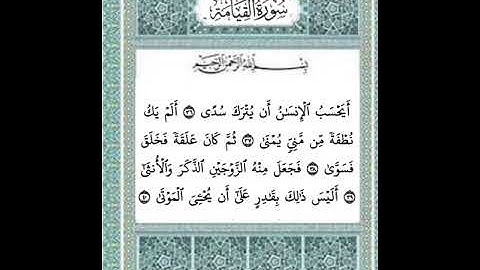 سُورَةُ القِيَامَةِ
بِسْمِ اللَّهِ الرَّحْمَٰنِ الرَّحِيمِ
أَيَحْسَبُ الْإِنسَٰنُ أَن يُتْرَكَ سُدًى ٣٦ أَلَمْ يَكُ
نُطْفَةً مِّن مَّنِيٍّ يُمْنَىٰ ٣٧ ثُمَّ كَانَ عَلَقَةً فَخَلَقَ
فَسَوَّىٰ ٣٨ فَجَعَلَ مِنْهُ الزَّوْجَيْنِ الذَّكَرَ وَالْأُنثَىٰٓ
٣٩ أَلَيْسَ ذَٰلِكَ بِقَٰدِرٍ عَلَىٰٓ أَن يُحْـِۧىَ الْمَوْتَىٰ ٤٠